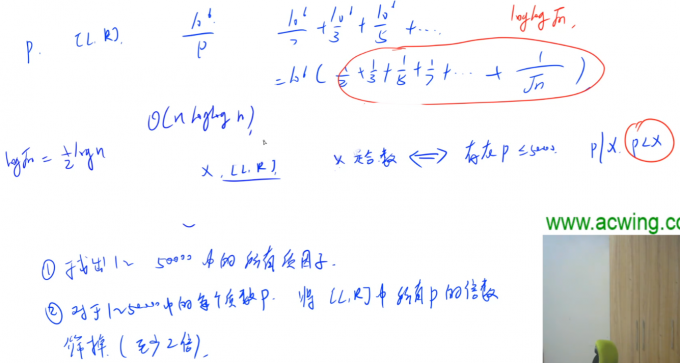 loglog√n.
p. [L.R]. 10⁶/p 10⁶/2 + 10⁶/3 + 10⁶/5 + ...
= 10⁶ ( 1/2 + 1/3 + 1/5 + 1/7 + ... + 1/√n )
O(n loglog n)
log√n = 1/2 logn
x. [L.R]. x 合数 <=> 存在 p ≤ 50000. p|x. p<x
www.acwing.co
① 找出 1~ 50000 中的所有质因子.
② 对于 1~50000 中的每个质数 p. 将 [L.R] 中所有 p 的倍数
筛掉 (至少2倍).